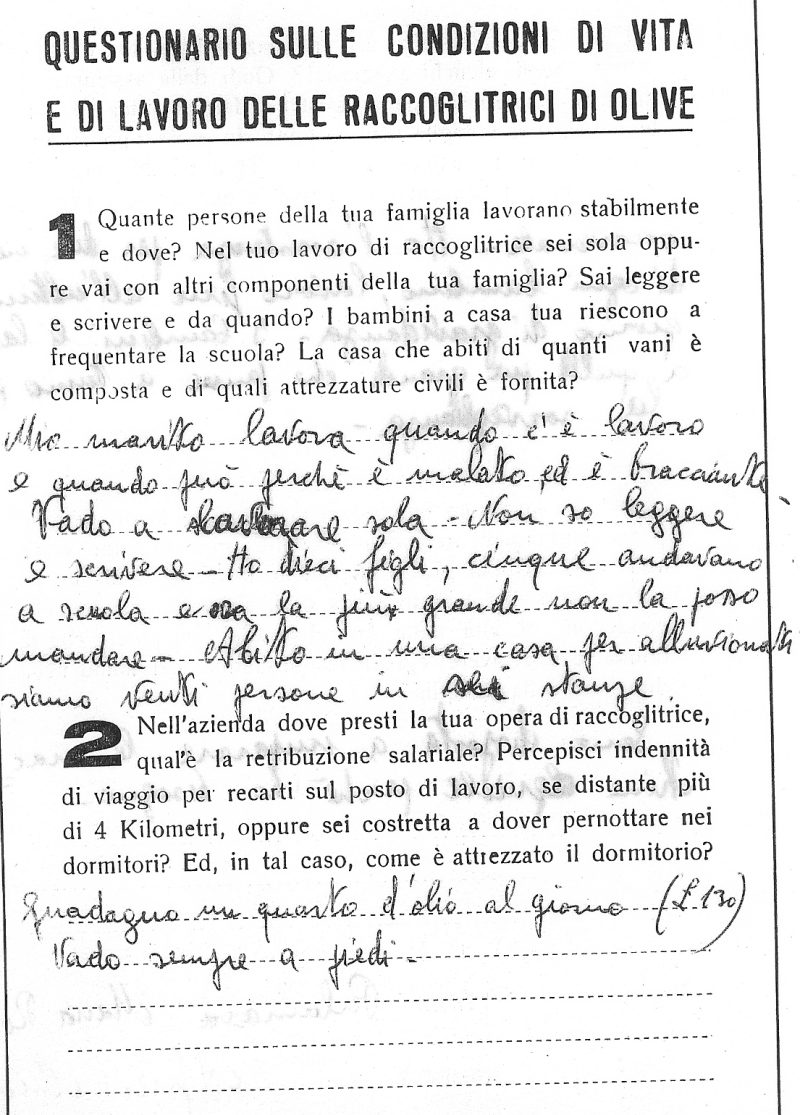 QUESTIONARIO SULLE CONDIZIONI DI VITA
E DI LAVORO DELLE RACCOGLITRICI DI OLIVE
1 Quante persone della tua famiglia lavorano stabilmente
e dove? Nel tuo lavoro di raccoglitrice sei sola oppu-
re vai con altri componenti della tua famiglia? Sai leggere
e scrivere e da quando? I bambini a casa tua riescono a
frequentare la scuola? La casa che abiti di quanti vani è
composta e di quali attrezzature civili è fornita?
Mio marito lavora quando c'è lavoro
e quando può perchè è malato ed è bracciante
Vado a lavorare sola - Non so leggere
e scrivere - Ho dieci figli, cinque andavano
a scuola e ora la più grande non la posso
mandare - Abito in una casa per alluvionati
siamo venti persone in sei stanze
2 Nell'azienda dove presti la tua opera di raccoglitrice,
qual'è la retribuzione salariale? Percepisci indennità
di viaggio per recarti sul posto di lavoro, se distante più
di 4 Kilometri, oppure sei costretta a dover pernottare nei
dormitori? Ed, in tal caso, come è attrezzato il dormitorio?
Guadagno un quarto d'olio al giorno (£ 130)
Vado sempre a piedi -